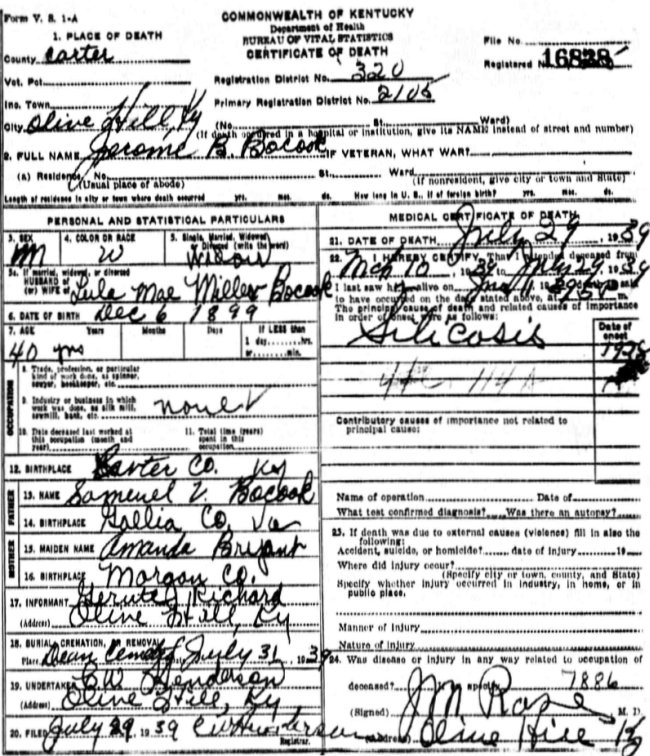 Form V. S. 1-A
COMMONWEALTH OF KENTUCKY
Department of Health
BUREAU OF VITAL STATISTICS
CERTIFICATE OF DEATH
1. PLACE OF DEATH
County Carter
File No.
Registered No. 16828
Vot. Pct.
Registration District No. 320
Inc. Town
Primary Registration District No. 2105
City Olive Hill, Ky (No. St. Ward)
(If death occurred in a hospital or institution, give its NAME instead of street and number)
2. FULL NAME Jerome B. Bocook IF VETERAN, WHAT WAR?
(a) Residence. No. St. Ward.
(Usual place of abode) (If nonresident, give city or town and State)
Length of residence in city or town where death occurred yrs. mos. ds. How long in U. S., if of foreign birth? yrs. mos. ds.
PERSONAL AND STATISTICAL PARTICULARS
3. SEX 4. COLOR OR RACE 5. Single, Married, Widowed or Divorced (write the word)
M W Widow
5a. If married, widowed, or divorced
HUSBAND of
(or) WIFE of Lula Mae Miller Bocook
6. DATE OF BIRTH Dec 6 1899
7. AGE Years Months Days If LESS than
1 day, hrs.
or min.
40 yrs
OCCUPATION
8. Trade, profession, or particular
kind of work done, as spinner,
sawyer, bookkeeper, etc.
9. Industry or business in which
work was done, as silk mill,
sawmill, bank, etc. none
10. Date deceased last worked at
this occupation (month and
year)
11. Total time (years)
spent in this
occupation
12. BIRTHPLACE Carter Co. Ky
FATHER
13. NAME Samuel V. Bocook
14. BIRTHPLACE Gallia Co. Va
MOTHER
15. MAIDEN NAME Amanda Bryant
16. BIRTHPLACE Morgan Co.
17. INFORMANT Richard
(Address) Olive Hill, Ky
18. BURIAL, CREMATION, OR REMOVAL
Place Cemetery Date July 31, 1939
19. UNDERTAKER C.W. Henderson
(Address) Olive Hill, Ky
20. FILED July 29, 1939 C W Henderson
Registrar.
MEDICAL CERTIFICATE OF DEATH
21. DATE OF DEATH July 29, 1939
22. I HEREBY CERTIFY, That I attended deceased from
Mch 10, 1938 to July 29, 1939
I last saw h alive on
to have occurred on the date stated above, at m.
The principal cause of death and related causes of importance
in order of onset were as follows:
Date of
onset
Silicosis
114 A
Contributory causes of importance not related to
principal cause:
Name of operation Date of
What test confirmed diagnosis? Was there an autopsy?
23. If death was due to external causes (violence) fill in also the
following:
Accident, suicide, or homicide? date of injury 19
Where did injury occur?
(Specify city or town, county, and State)
Specify whether injury occurred in industry, in home, or in
public place.
Manner of Injury
Nature of Injury
24. Was disease or injury in any way related to occupation of
deceased? If so, specify 7886
(Signed) J M Rose M. D.
(Address) Olive Hill Ky